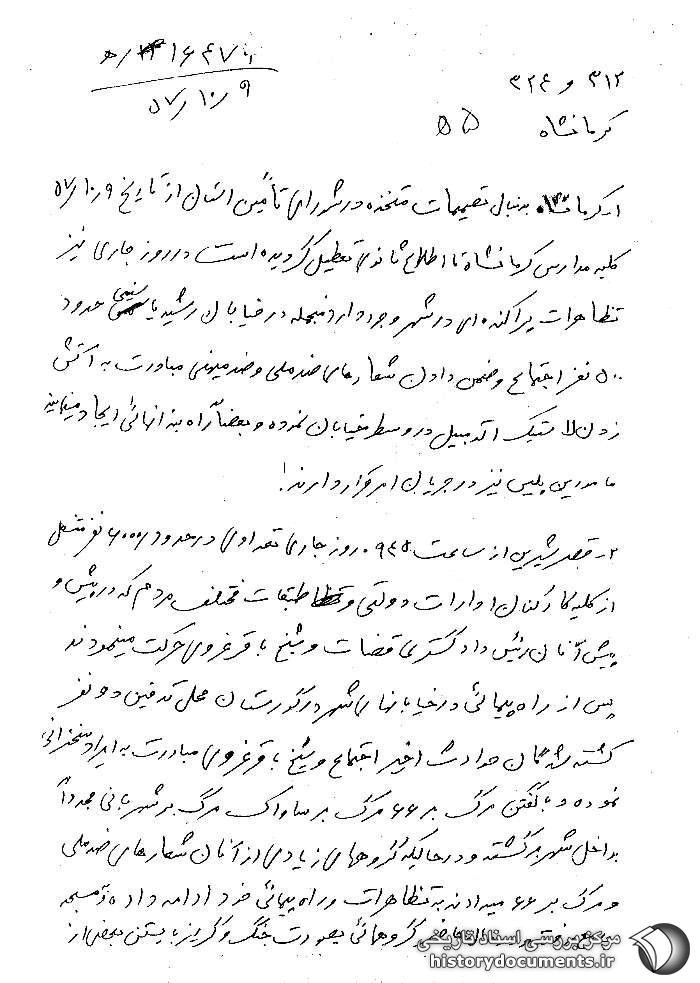 ۳۱۲ و ۳۲۴
۵۷/۱۰/۹
کرمانشاه ۵۵
۱- کرمانشاه بدنبال تصمیمات متخذه در شورای تأمین استان از تاریخ ۵۷/۱۰/۹
کلیه مدارس کرمانشاه تا اطلاع ثانوی تعطیل گردیده است در روز جاری نیز
تظاهرات پراکنده‌ای در شهر وجود دارد منجمله در خیابان رشید یاسمی حدود
۵۰۰ نفر اجتماع و ضمن دادن شعارهای ضد ملی و ضد میهنی مبادرت به آتش
زدن لاستیک اتومبیل در وسط خیابان نموده و بعضاً راه بندانهائی ایجاد مینمایند
مامورین پلیس نیز در جریان امر قرار دارند!
۲- قصرشیرین از ساعت ۰۹۴۵ روز جاری تعدادی در حدود ۶۰۰۰ نفر متشکل
از کلیه کارکنان ادارات دولتی و طبقات مختلف مردم که در پیش و
پیش آنان رئیس دادگستری قضات و شیخ باقر غروی حرکت مینمودند
پس از راه پیمائی در خیابانهای شهر در گورستان محل تدفین دو نفر
کشته شدگان حوادث اخیر اجتماع و شیخ باقر غروی مبادرت به ایراد سخنرانی
نموده و با گفتن مرگ بر ۶۶ مرگ بر ساواک مرگ بر شهربانی مجدداً
بداخل شهر برگشته و در حالیکه گروهای زیادی از آنان شعارهای ضد ملی
و مرگ بر ۶۶ میدادند به تظاهرات و راه پیمائی خود ادامه داده
گروهائی بصورت جنگ و گریز با بستن بعضی از
مرکز بررسی اسناد تاریخی
historydocuments.ir